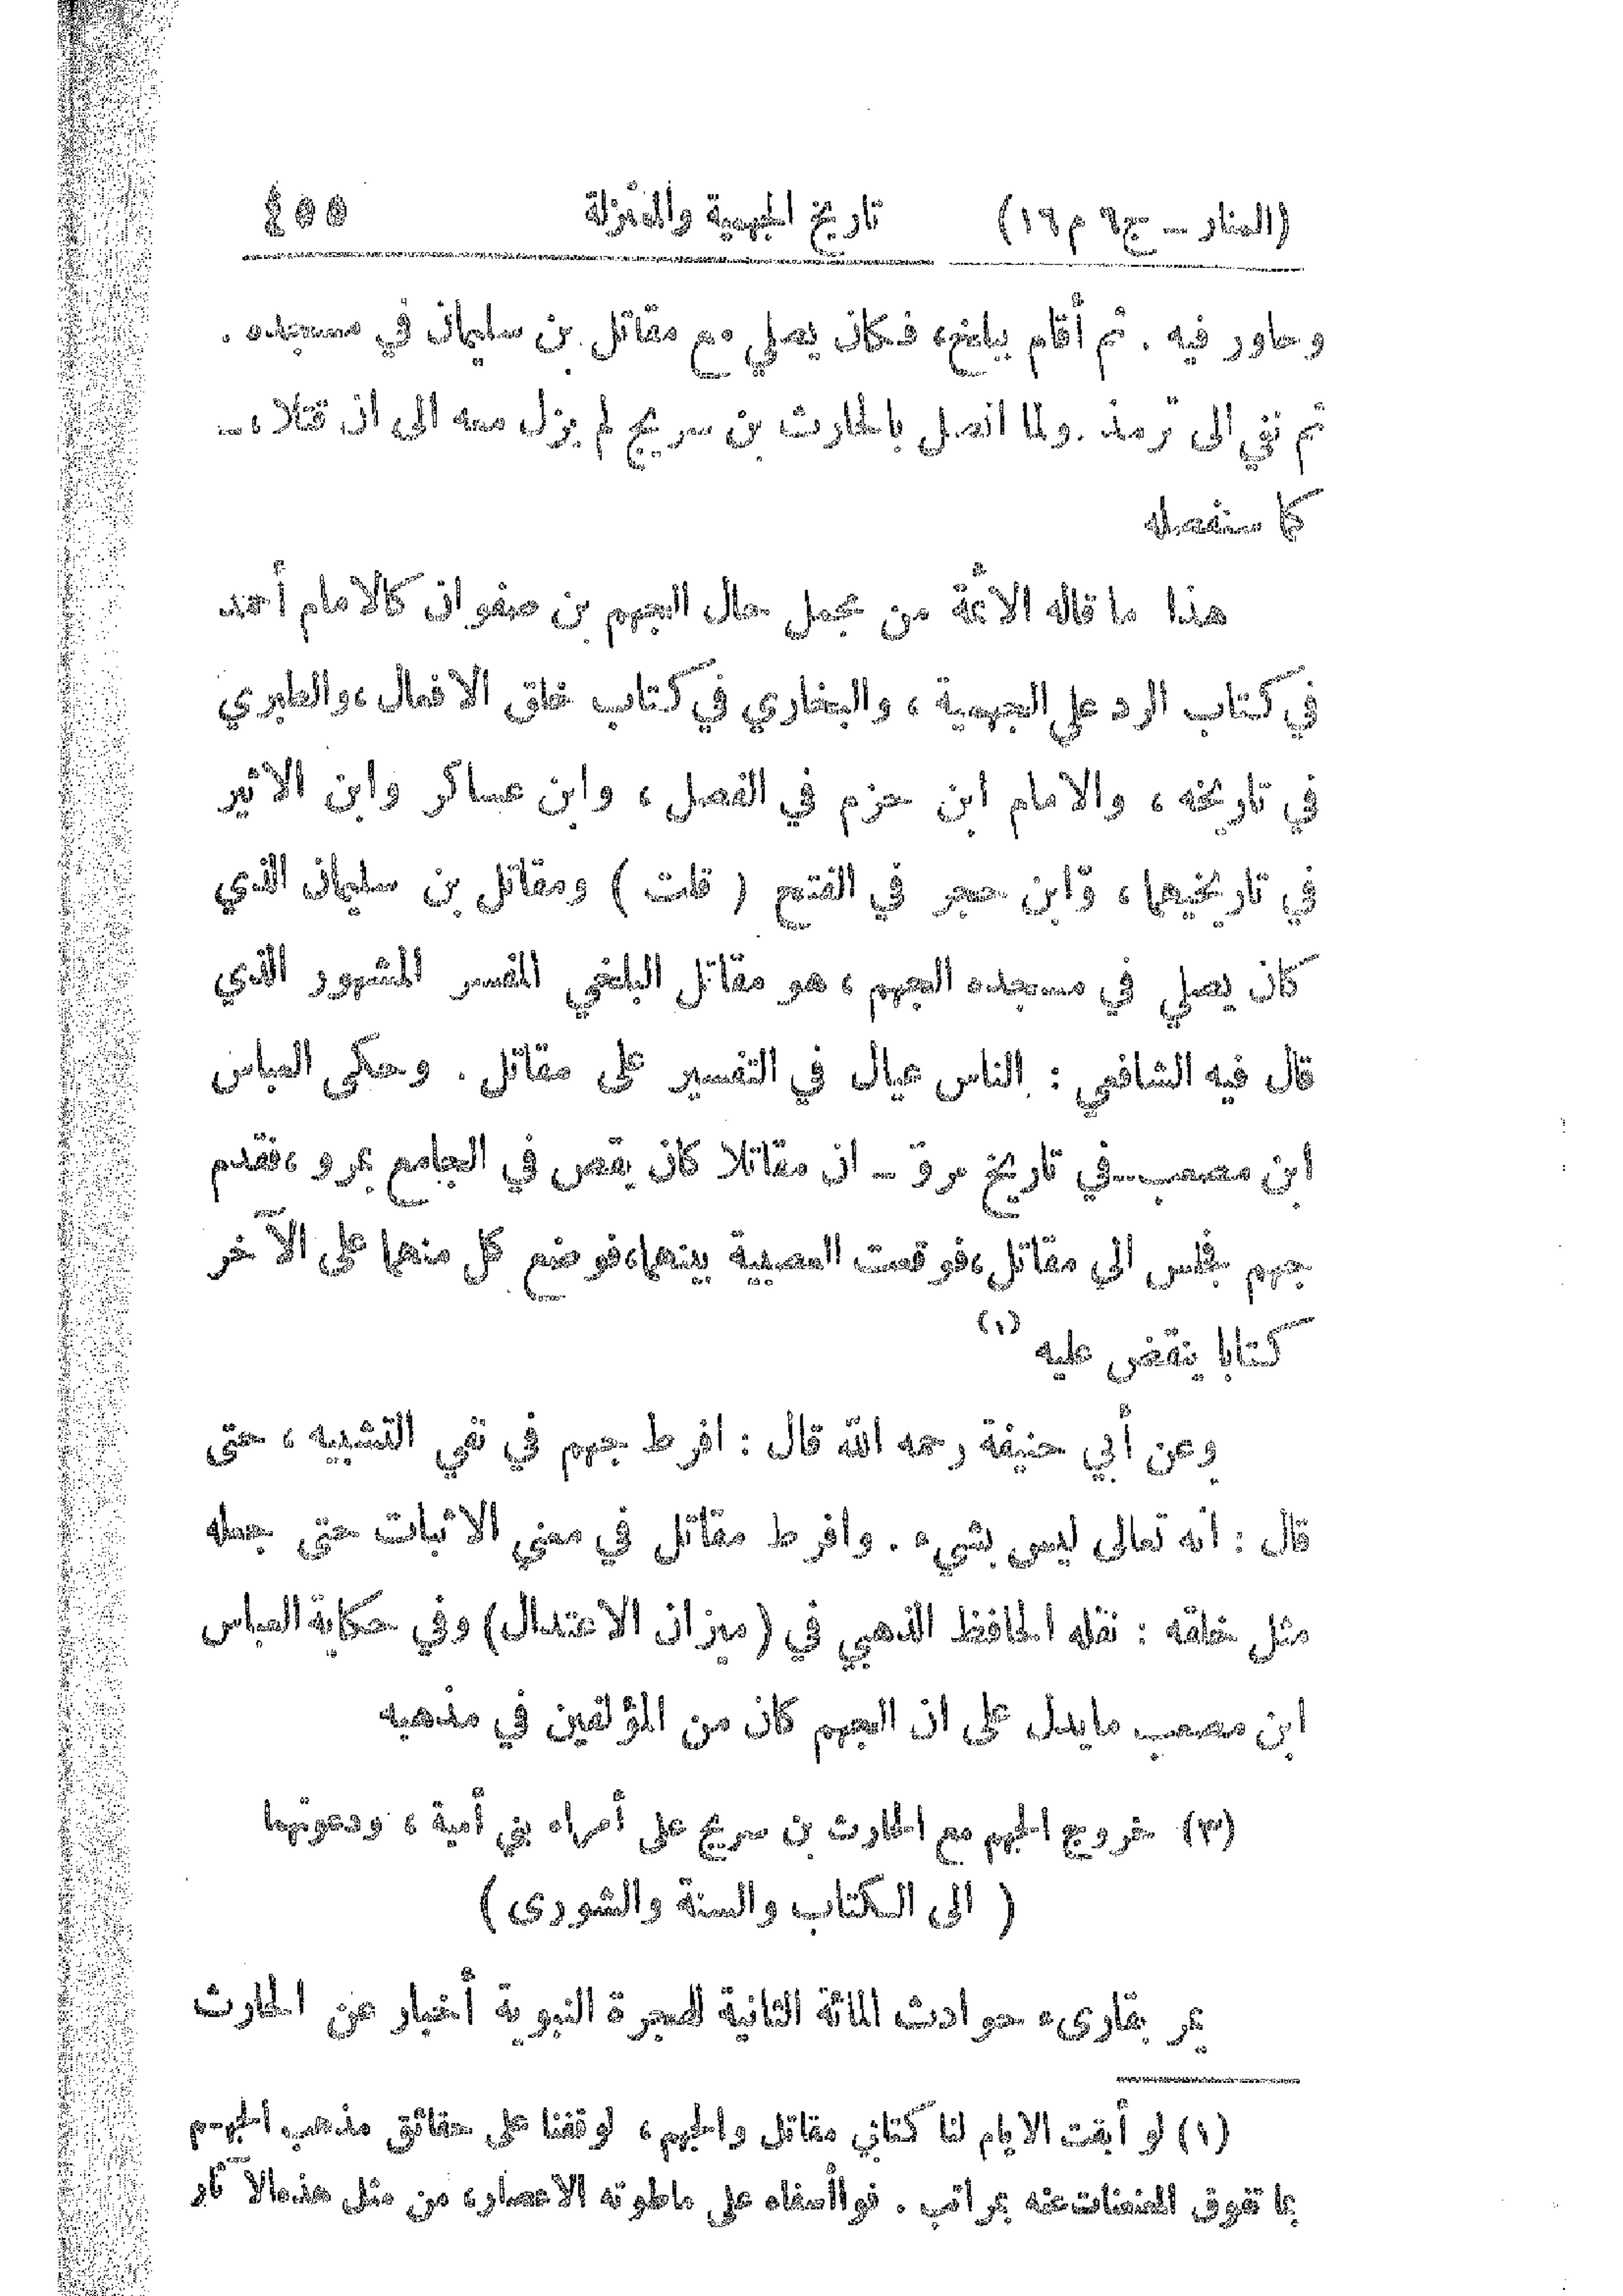 (المنار — ج٦ م١٦) تاريخ الجهمية والمعتزلة ٤٥٥
وحاور فيه . ثم أقام ببلخ، فكان يصلي مع مقاتل بن سليمان في مسجده .
ثم نفي الى ترمذ . ولما اتصل بالحارث بن سريج لم يزل معه الى ان قتلا، —
كما سنفصله
هذا ما قاله الأئمة من مجمل حال الجهم بن صفوان كالامام أحمد
في كتاب الرد على الجهمية ، والبخاري في كتاب خلق الافعال ، والطبري
في تاريخه ، والامام ابن حزم في الفصل ، وابن عساكر وابن الاثير
في تاريخيهما ، وابن حجر في الفتح ( قلت ) ومقاتل بن سليمان الذي
كان يصلي في مسجده الجهم ، هو مقاتل البلخي المفسر المشهور الذي
قال فيه الشافعي : الناس عيال في التفسير على مقاتل . وحكى العباس
ابن مصعب — في تاريخ مرو — ان مقاتلا كان يقص في الجامع بمرو ، فقدم
جهم فجلس الى مقاتل ، فوقعت العصبية بينهما، فوضع كل منهما على الآخر
كتابا ينقض عليه (١)
وعن أبي حنيفة رحمه الله قال : افرط جهم في نفي التشبيه ، حتى
قال : انه تعالى ليس بشيء . وافرط مقاتل في معنى الاثبات حتى جعله
مثل خلقه : نقله الحافظ الذهبي في (ميزان الاعتدال) وفي حكاية العباس
ابن مصعب مايدل على ان الجهم كان من المؤلفين في مذهبه
(٣) خروج الجهم مع الحارث بن سريج على أمراء بني أمية ، ودعوتهما
( الى الكتاب والسنة والشورى )
يمر بقارىء حوادث المائة الثانية للهجرة النبوية أخبار عن الحارث
(١) لو أبقت الايام لنا كتابي مقاتل والجهم ، لوقفنا على حقائق مذهب الجهم
بما تفوق المنعنات عنه بمراتب . فواأسفاه على ماطوته الاعصار، من مثل هذه الآثار